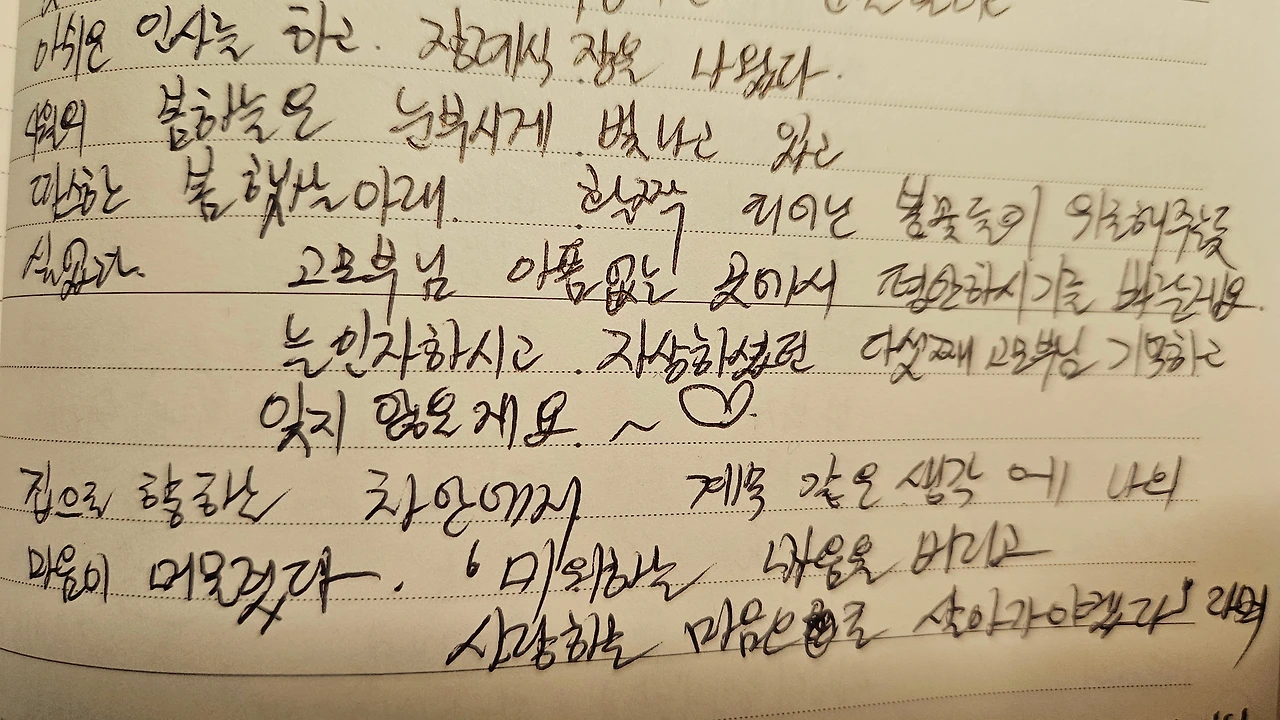 아쉬운 인사를 하고. 장례식 장을 나왔다.
4월의 봄하늘은 눈부시게 빛나고 있고
따스한 봄 햇살 아래. 활짝 피어난 봄꽃들이 위로해주는듯
싶었다. 고모부님 아픔없는 곳에서 평안하시기를 바랄게요.
늘 인자하시고. 자상하셨던 다섯째 고모부님 기억하고
잊지 않을게요. ~ ♡
집으로 향하는 차안에서 계속 같은 생각에 나의
마음이 머물렀다. '미워하는 마음을 버리고
사랑하는 마음으로 살아가야겠다' 라며